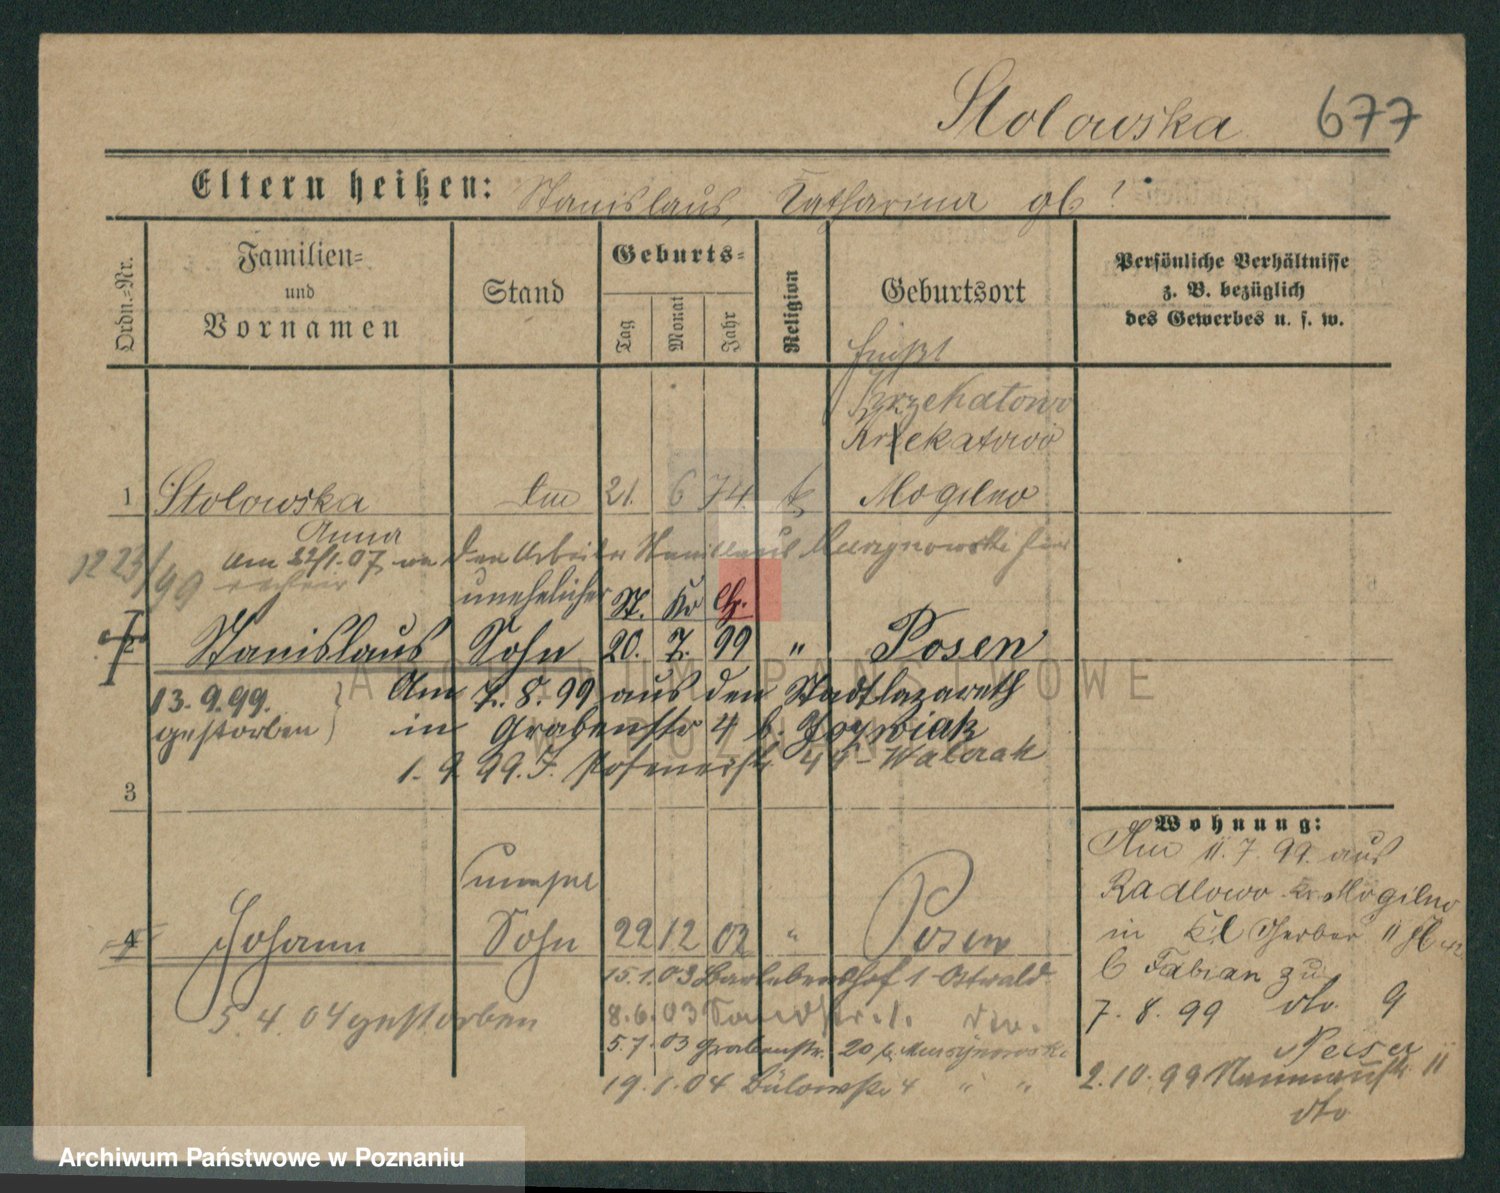 Stolowska 677
Eltern heißen: Stanislaus, Katharina gb ?
Ordn.-Nr.
Familien-
und
Vornamen
Stand
Geburts-
Tag
Monat
Jahr
Religion
Geburtsort
Persönliche Verhältnisse
z. B. bezüglich
des Gewerbes u. s. w.
Krzekatowo
Krzekatowo
1 Stolowska 21. 6 74. k Mogilno
Anna
Am 22/1.07 den Arbeiter Stanislaus Murzynowski
12 23/99
unehelicher St. Kr Ch.
2 Stanislaus Sohn 20. 7. 99 " Posen
13.9.99. Am 7.8.99 aus dem Stadtlazareth
gestorben in Grabenstr 4 b.
1.9.99. J. Posenerstr 44 Walczak
3
Wohnung:
Am 11.7.99. aus
Radlowo Kr. Mogilno
in Kl Gerber 11
b Fabian zu
7.8.99 dto 9
Peiser
2.10.99 Naumannstr 11
dto
4 Johann Sohn 22 12 02 " Posen
15.1.03 Bartlebenshof 1 Ostwald
5.4.04 gestorben 8.6.03 Sandstr. 1.
5.7.03 Grabenstr. 20 b. Murzynowski
19.1.04 Bülowstr 4 " "
ARCHIWUM PAŃSTWOWE
W POZNANIU
Archiwum Państwowe w Poznaniu